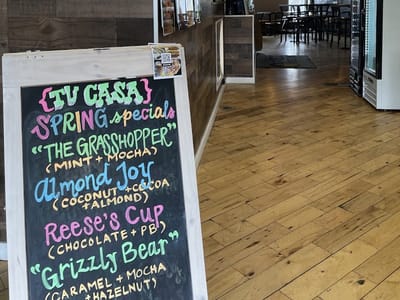 {TU CASA}
SPRING specials
"THE GRASSHOPPER"
(MINT + MOCHA)
Almond Joy
(COCONUT + COCOA
+ ALMOND)
REESE'S CUP
(CHOCOLATE + PB)
"Grizzly Bear"
(CARAMEL + MOCHA
+ HAZELNUT)